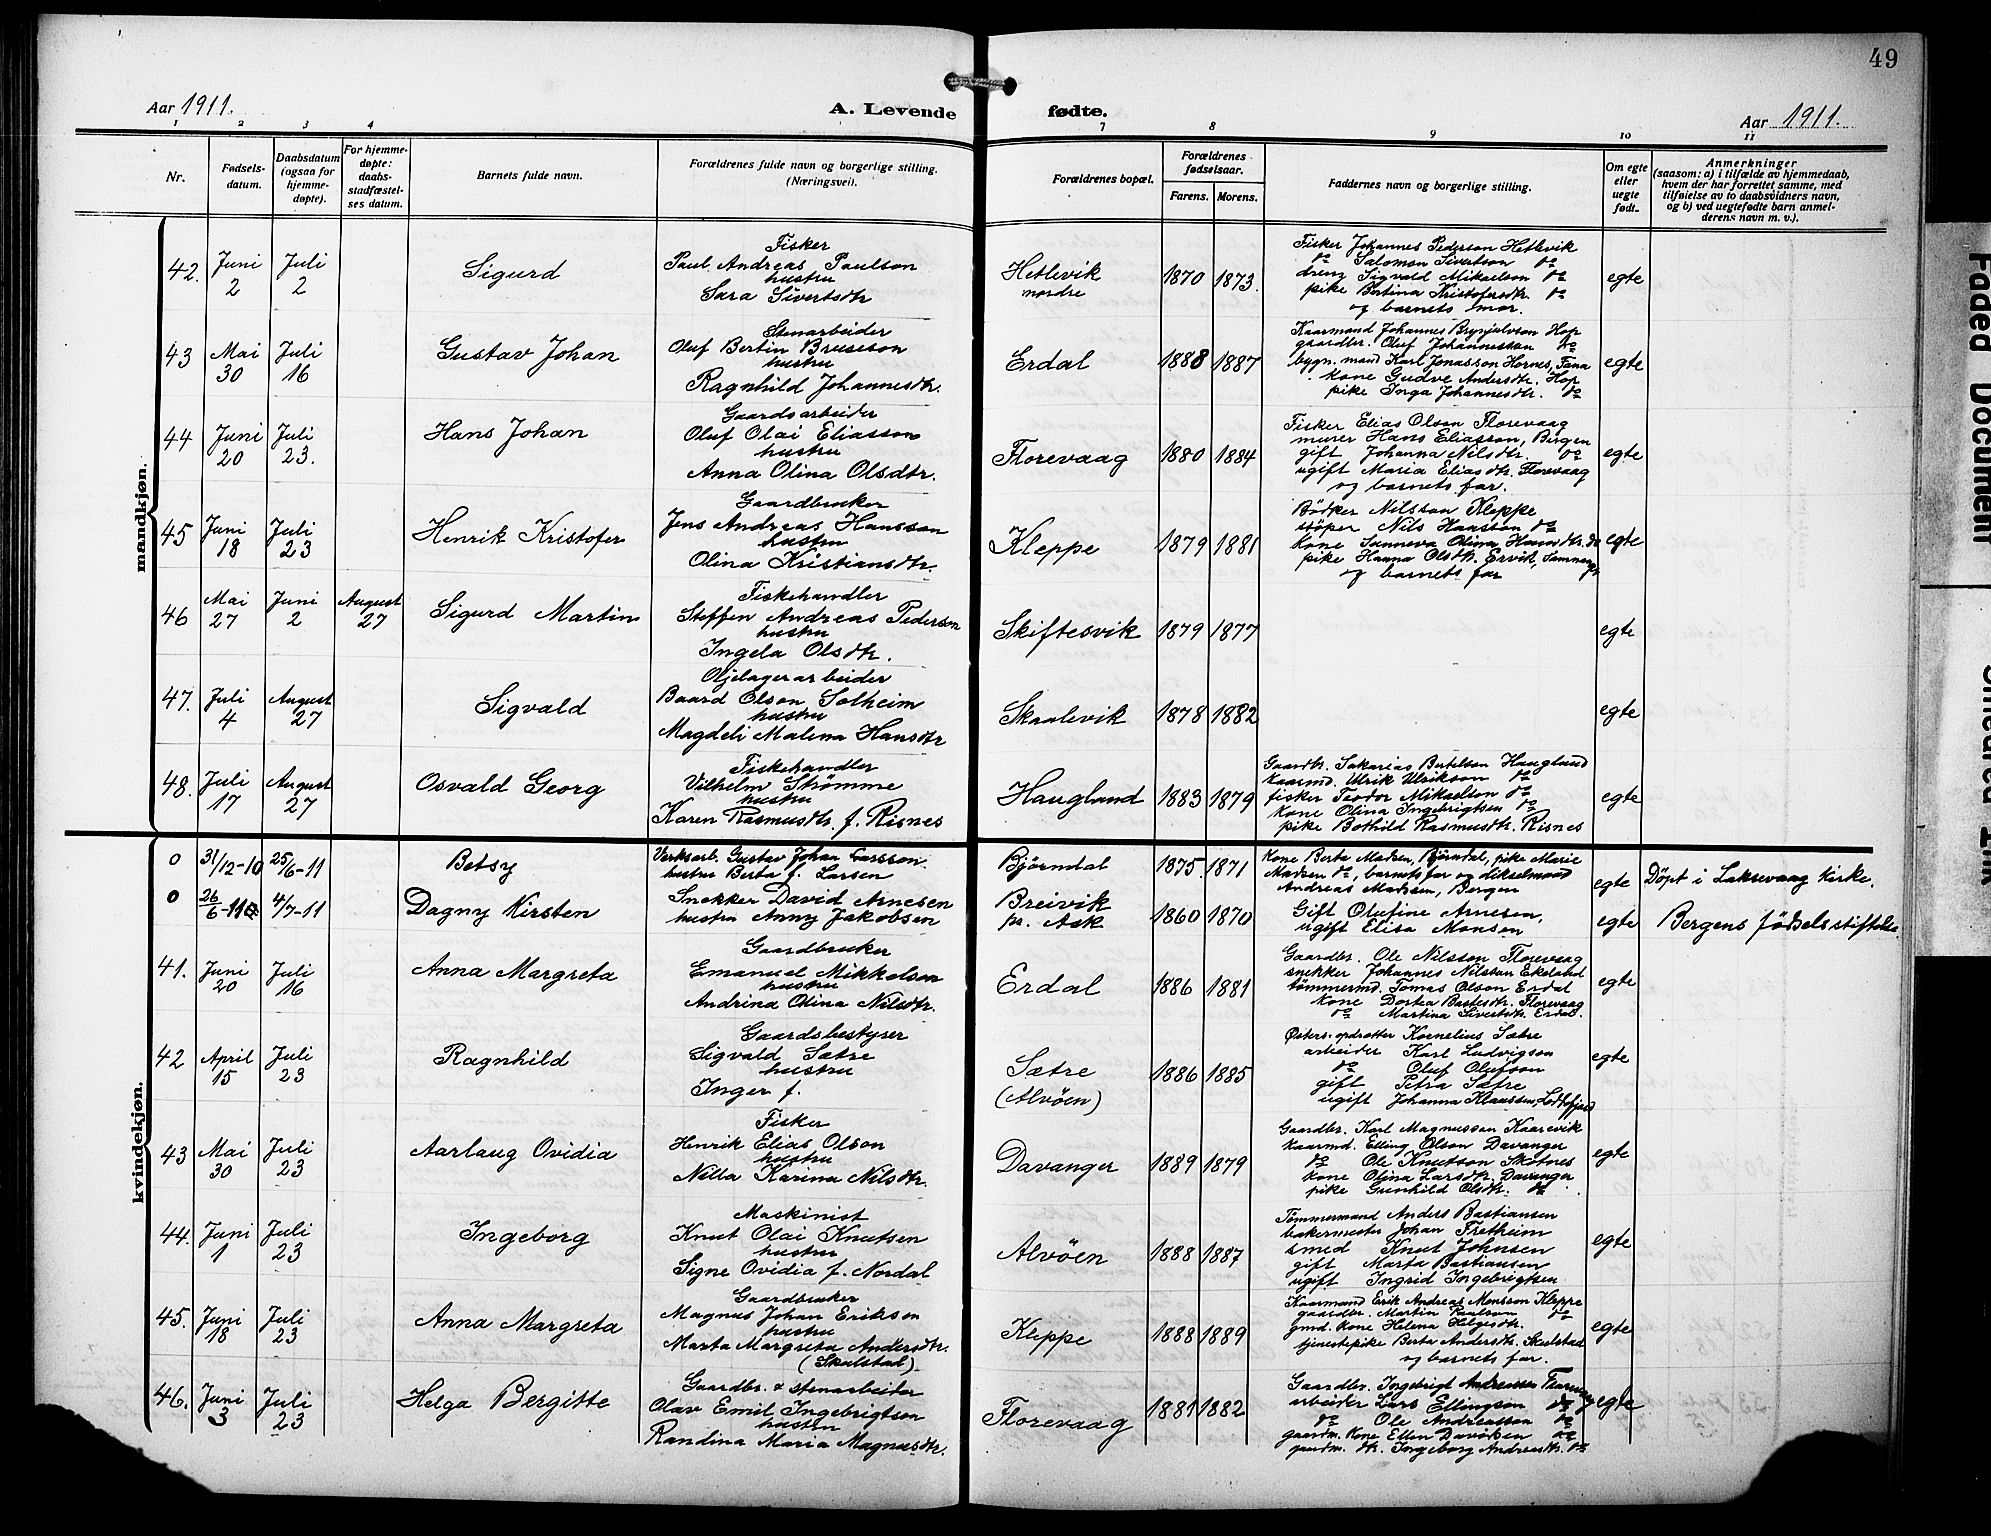 49
Aar 1911.
A. Levende fødte.
Aar 1911.
1 2 3 4 7 8 9 10 11
Nr.
Fødsels-
datum.
Daabsdatum
(ogsaa for
hjemme-
døpte).
For hjemme-
døpte:
daabs-
stadfæstel-
ses datum.
Barnets fulde navn.
Forældrenes fulde navn og borgerlige stilling.
(Næringsvei).
Forældrenes bopæl.
Forældrenes
fødselsaar.
Farens. Morens.
Faddernes navn og borgerlige stilling.
Om egte
eller
uegte
født.
Anmerkninger
(saasom: a) i tilfælde av hjemmedaab,
hvem der har forrettet samme, med
tilføielse av to daabsvidners navn,
og b) ved uegtefødte barn anmel-
derens navn m. v.).
mandkjøn.
42. Juni 2 Juli 2 Sigurd
Fisker
Paul Andreas Paulson
hustru
Sara Sivertsdtr
Hetlevik
nordre
1870 1873.
Fisker Johannes Pederson Hetlevik
do Salomon Sivertson do
dreng Sigvald Mikaelson do
pike Bertina Kristofersdtr. do
og barnets mor.
egte
43 Mai 30 Juli 16 Gustav Johan
Stenarbeider
Oluf Bertin Bruseson
hustru
Ragnhild Johannesdtr.
Erdal
1888 1887
Kaarmand Johannes Brynjulvson Hop
gaardbr. Oluf Johannesson do
bygn. mand Karl Jonasson Hornes, Fana
kone Gudve Andersdtr. Hop
pike Inga Johannesdtr. do
egte
44 Juni 20 Juli 23. Hans Johan
Gaardsarbeider
Oluf Olai Eliasson
hustru
Anna Olina Olsdtr.
Florevaag
1880 1884
Fisker Elias Olson Florevaag
murer Hans Eliasson, Bergen
gift Johanna Nilsdtr. do
ugift Maria Eliasdtr. Florevaag
og barnets far.
egte
45 Juni 18 Juli 23 Henrik Kristofer
Gaardbruker
Jens Andreas Hansson
hustru
Olina Kristiansdtr.
Kleppe
1879 1881
Bødker Nilsson Kleppe
støper Nils Hansson do
kone Sunneva Olina Hansdtr. do
pike Hanna Olsdtr. Ervik,
og barnets far
egte
46 Mai 27 Juni 2 August 27 Sigurd Martin
Fiskehandler
Steffen Andreas Pederson
hustru
Ingela Olsdtr.
Skiftesvik
1879 1877
egte
47. Juli 4 August 27 Sigvald
Oljelagerarbeider
Baard Olson Solheim
hustru
Magdeli Malena Hansdtr
Skaalevik
1878 1882
egte
48. Juli 17 August 27 Osvald Georg
Fiskehandler
Vilhelm Strømme
hustru
Karen Rasmusdtr. f. Risnes
Haugland
1883 1879
Gaardbr. Sakarias Bertelson Haugland
kaarmd. Ulrik Ulrikson do
fisker Teodor Mikaelson do
kone Olina Ingebrigtsen do
pike Bothild Rasmusdtr. Risnes
egte
kvindekjøn.
0 31/12-10 25/6-11 Betsy
Verksarb. Gustav Johan Larsson
hustru Berta f. Larsen
Bjørndal
1875. 1871
Kone Berta Madsen, Bjørndal, pike Marie
Madsen do, barnets far og dikselmand
Andreas Madsen, Bergen
egte
Døpt i Laksevaag Kirke.
0 26/6-11 4/7-11 Dagny Kirsten
Snekker David Arnesen
hustru Anny Jakobsen
Breivik
pr. Ask
1860 1870
Gift Olufine Arnesen,
ugift Elisa Monsen
egte
Bergens fødselsstiftelse.
41. Juni 20 Juli 16 Anna Margreta
Gaardbruker
Emanuel Mikkelson
hustru
Andrina Olina Nilsdtr.
Erdal
1886 1881
Gaardbr. Ole Nilsson Florevaag
snekker Johannes Nilsson Ekeland
tømmermd. Tomas Olson Erdal
kone Dortea Bastesdtr. Florevaag
do Martina Sivertsdtr. Erdal.
egte
42 April 15 Juli 23 Ragnhild
Gaardsbestyser
Sigvald Sætre
hustru
Inger f.
Sætre
(Alvøen)
1886 1885
Østers-opdrætter Kornelius Sætre
arbeider Karl Ludvigson
do Oluf Olufson
gift Petra Sætre
ugift Johanna Klaussen,
egte
43 Mai 30 Juli 23 Aarlaug Ovidia
Fisker
Henrik Elias Olson
hustru
Nilla Karina Nilsdtr.
Davanger
1889 1879
Gaardbr. Karl Magnusson Kaarevik
kaarmd. Elling Olson Davanger
do Ole Knutson Skotnes
kone Olina Larsdtr. Davanger
pike Gunhild Olsdtr. do
egte
44. Juni 1 Juli 23 Ingeborg
Maskinist
Knut Olai Knutsen
hustru
Signe Ovidia f. Nordal
Alvøen
1888 1887
Tømmermand Anders Bastiansen
bakermester Johan Fretheim
smed Knut Johnsen
gift Marta Bastiansen
ugift Ingrid Ingebrigtsen
egte
45. Juni 18 Juli 23 Anna Margreta
Gaardbruker
Magnus Johan Erikson
hustru
Marta Margreta Andersdtr.
(Skulstad)
Kleppe
1888 1889
Kaarmand Erik Andreas Monsson Kleppe
gaardbr. Martin Paulson do
gmd. kone Helena Helgesdtr.
tjenestepike Berta Andersdtr. Skulstad
og barnets far.
egte
46. Juni 3 Juli 23 Helga Bergitte
Gaardbr. & stenarbeider
Olav Emil Ingebrigtson
hustru
Randina Maria Magnusdtr.
Florevaag
1881 1882
Gaardbr. Ingebrigt Andreassen
arbeider Lars Ellingson do
do Ole Andreasson do
gaardm. kone Ellen Davidsen do
gaardm. dtr. Ingeborg Andreasdtr. do
egte
Faded Document